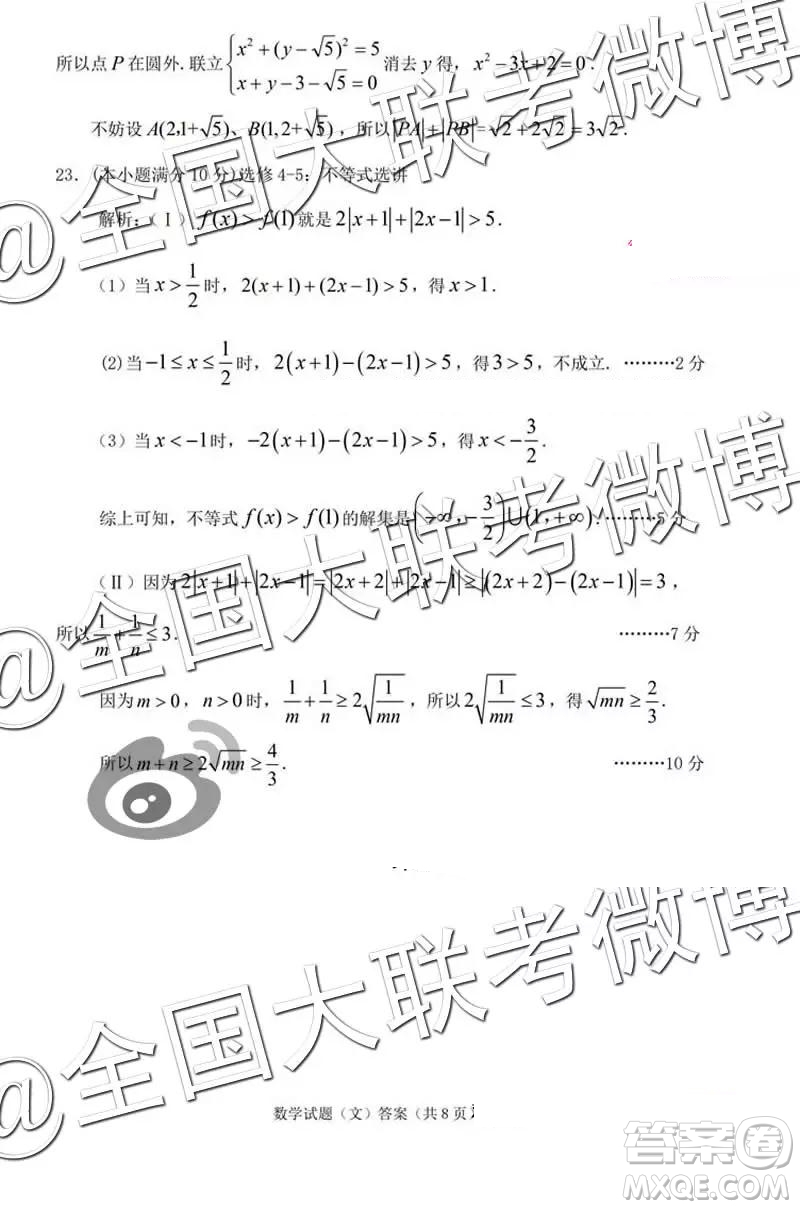 所以点 P 在圆外.联立 { x² + (y − √5)² = 5 消去 y 得，x² − 3x + 2 = 0．
x + y − 3 − √5 = 0
不妨设 A(2,1+√5)、B(1,2+√5)，所以 |PA| + |PB| = √2 + 2√2 = 3√2．
23．(本小题满分 10 分)选修 4-5：不等式选讲
解析：（Ⅰ）f(x) > f(1) 就是 2|x+1| + |2x−1| > 5．
（1）当 x > 1/2 时，2(x+1) + (2x−1) > 5，得 x > 1．
(2)当 −1 ≤ x ≤ 1/2 时，2(x+1) − (2x−1) > 5，得 3 > 5，不成立．………2 分
（3）当 x < −1 时，−2(x+1) − (2x−1) > 5，得 x < −3/2．
综上可知，不等式 f(x) > f(1) 的解集是 (−∞，−3/2)∪(1，+∞)．………5 分
（Ⅱ）因为 2|x+1| + |2x−1| = |2x+2| + |2x−1| ≥ |(2x+2) − (2x−1)| = 3，
所以 1/m + 1/n ≤ 3． ………7 分
因为 m > 0，n > 0 时，1/m + 1/n ≥ 2√(1/mn)，所以 2√(1/mn) ≤ 3，得 √mn ≥ 2/3．
所以 m + n ≥ 2√mn ≥ 4/3． ………10 分
@全国大联考微博
@全国大联考微博
数学试题（文）答案（共 8 页
答案卷
MXQE.COM